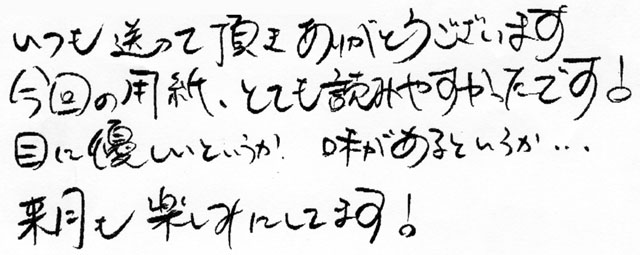 いつも送って頂きありがとうございます
今回の用紙、とても読みやすかったです!
目に優しいというか 味があるというか…
来月も楽しみにしてます!